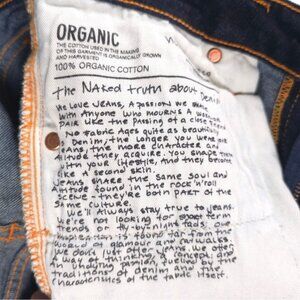 ORGANIC
THE COTTON USED IN THE MAKING
OF THIS GARMENT IS ORGANICALLY GROWN
AND HARVESTED
100% ORGANIC COTTON
the Naked truth about Denim
We love jeans, a passion we share
with anyone who mourns a worn out
pair like the passing of a close friend.
No fabric ages quite as beautifully as
Denim, the longer you wear your
jeans, the more character and
attitude they acquire. You shape them
with your lifestyle, and they become
like a second skin.
Jeans share the same soul and
attitude found in the rock'n'roll
scene - they're both part of the
same culture.
We'll always stay true to jeans.
We're not looking for short term
trends or fly-by-night fads. Our
inspiration is found far from the
world of glamour and catwalks.
We don't just offer jeans, we offer
a way of thinking, a concept, and
an undying passion, fueled by the
traditions of denim and the
characteristics of the fabric itself.